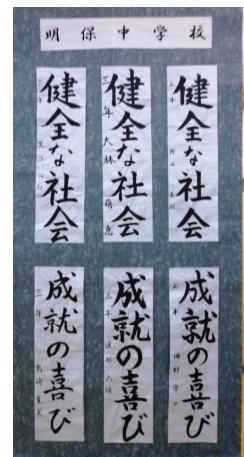 明保中学校
健全な社会
健全な社会
三年 大林萌恵
健全な社会
成就の喜び
成就の喜び
三年
成就の喜び
三年